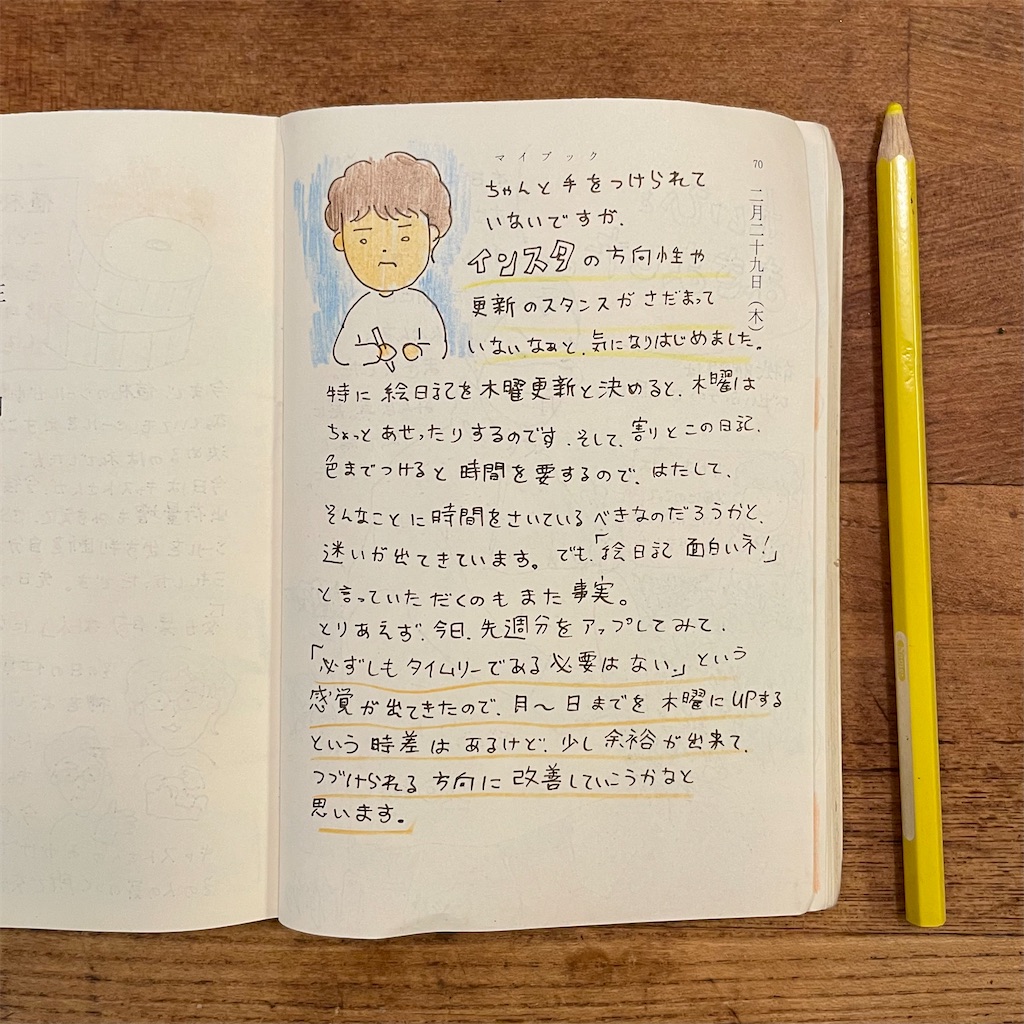 マイブック
70
二月二十九日（木）
ちゃんと手をつけられて
いないですが、
インスタの方向性や
更新のスタンスがさだまって
いないなぁと、気になりはじめました。
特に絵日記を木曜更新と決めると、木曜は
ちょっとあせったりするのです。そして、割りとこの日記、
色までつけると時間を要するので、はたして、
そんなことに時間をさいているべきなのだろうかと、
迷いが出てきています。でも、「絵日記 面白いネ！」
と言っていただくのもまた事実。
とりあえず、今日、先週分をアップしてみて、
「必ずしもタイムリーである必要はない。」という
感覚が出てきたので、月〜日までを木曜にUPする
という時差はあるけど、少し余裕が出来て、
つづけられる方向に改善していこうかなと
思います。